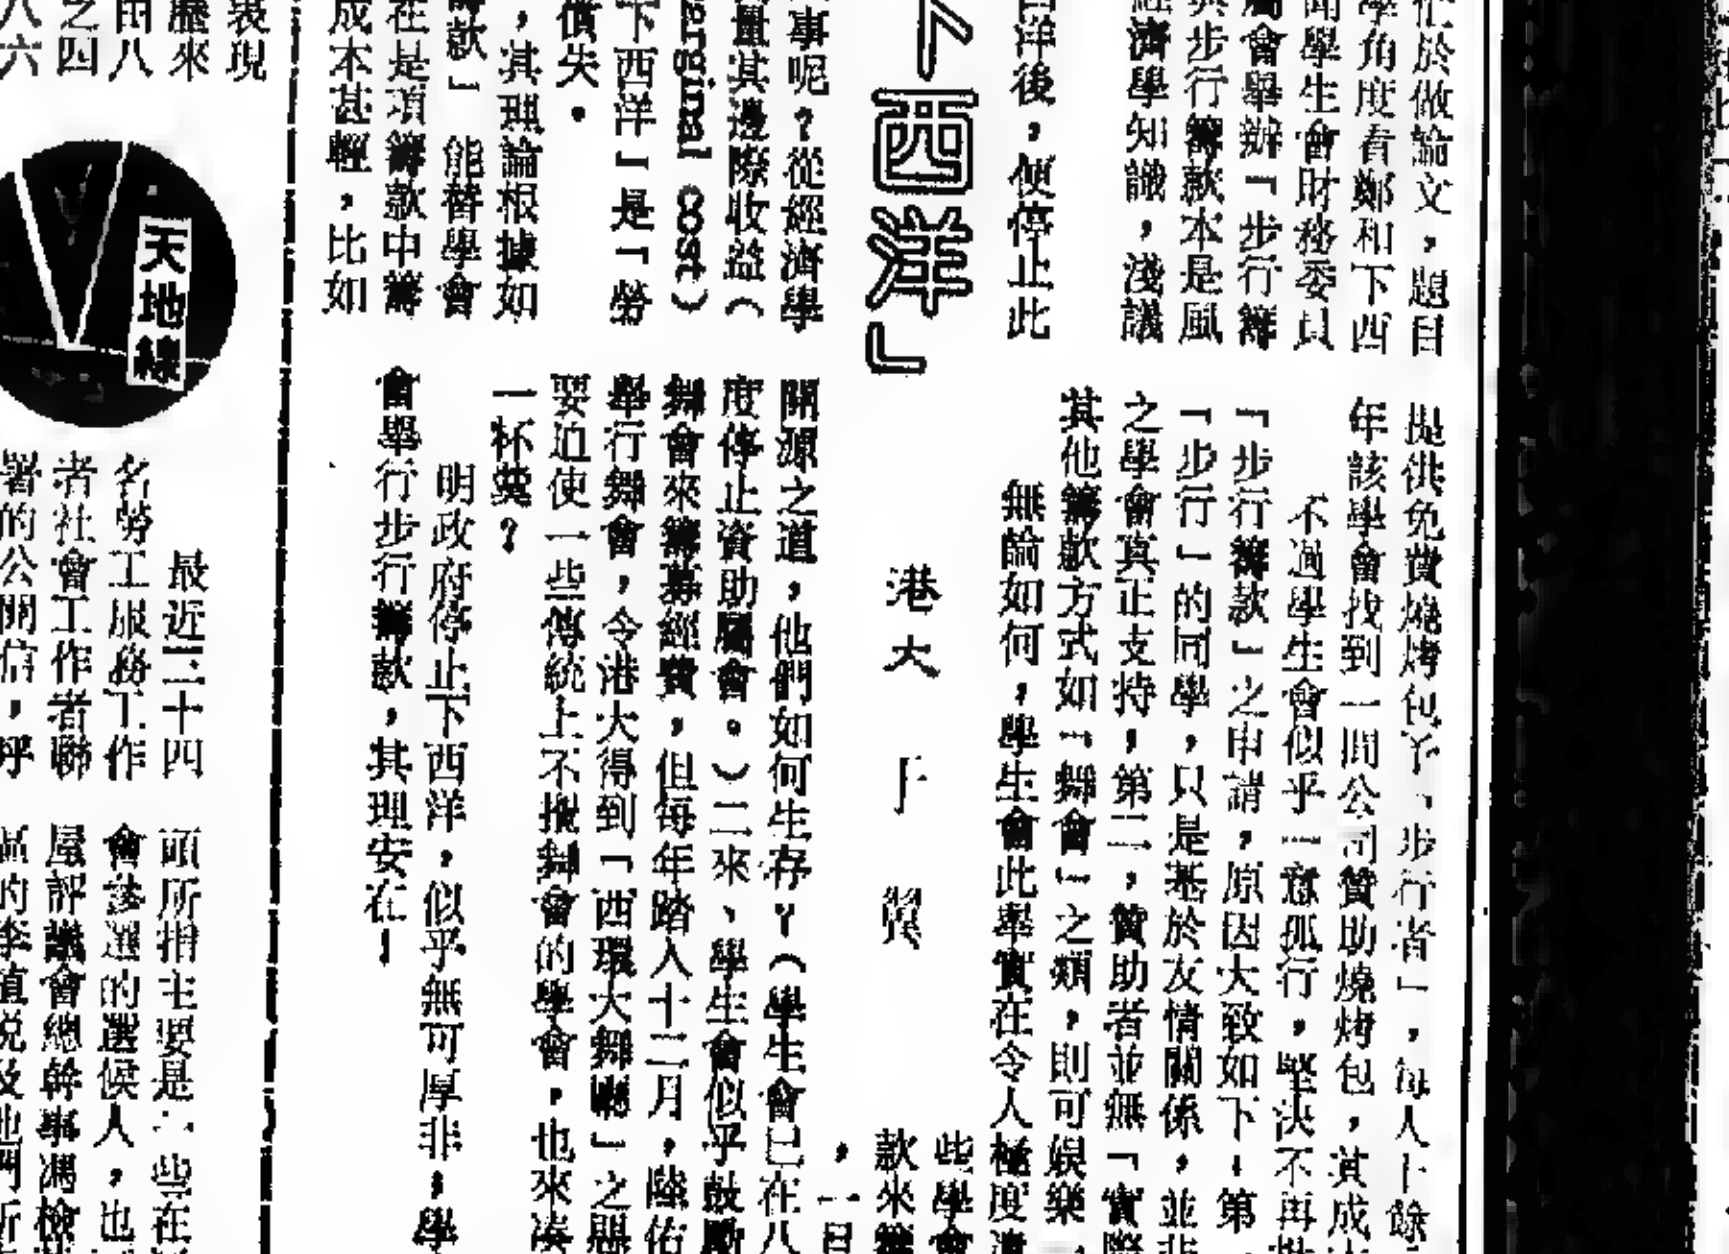 忙於做論文，題目
學角度看鄭和下西
聞學生會財務委員
屬會舉辦「步行籌
與步行籌款本是風
經濟學知識，淺議
西洋後，便停止此
下西洋」
事呢？從經濟學
量其邊際收益（
marginal cost）
下西洋」是「勞
償失。
，其理論根據如
籌款」能替學會
在是項籌款中籌
成本甚輕，比如
提供免費燒烤包予「步行者」，每人十餘
年該學會找到一間公司贊助燒烤包，其成本
不過學生會似乎一意孤行，堅決不再批
「步行籌款」之申請，原因大致如下：第
「步行」的同學，只是基於友情關係，並非
之學會真正支持，第二，贊助者並無「實際
其他籌款方式如「舞會」之類，則可娛樂
無論如何，學生會此舉實在令人極度遺
些學會
款來籌
，一日
港大 翼
開源之道，他們如何生存？（學生會已在八
度停止資助屬會。）二來、學生會似乎鼓勵
舞會來籌募經費，但每年踏入十二月，陸佑
舉行舞會，令港大得到「西環大舞廳」之
要迫使一些傳統上不搅舞會的學會，也來湊
一杯羹？
明政府停止下西洋，似乎無可厚非，學
會舉行步行籌款，其理安在！
表現
歷來
田八
之四
八六
天地線
最近三十四
名勞工服務工作
者社會工作者聯
署的公開信，呼
頭所指主要是一些在
會參選的選候人，也
屋評議會總幹事馮檢
區的李植悅及他們所